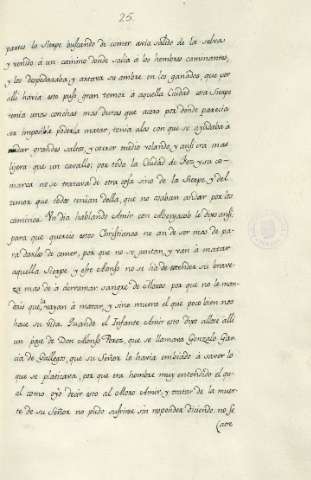 25.
parte la Sierpe buscando de comer avia salido de la selva
y venido a un camino donde salia a los hombres caminantes,
y los despedazaba, y artava su ambre en los ganados, que por
alli havia esto puso gran temor à aquella Ciudad esta Sierpe
tenia unas conchas mas duras que acero por donde parecia
ser imposible poderla matar, tenia alas con que se ayudaba à
andar grandes saltos, y correr medio volando, y ansi era mas
lijera que un cavallo; por toda la Ciudad de Fez, y su co-
marca no se tratava de otra cosa sino de la Sierpe, y del
temor que todos tenian della, que no osaban andar por los
caminos. Un dia hablando Amir con Abenyucob le dixo ansi,
para que quereis estos Christianos no an de ser mas de pa-
ra darles de comer, por que no se juntan y van à matar
aquella Sierpe y este Alonso no se ha de estender su brave-
za mas de a derramar sangre de Moros por que no le man-
deis que vayan à matar, y sino muera el que poco bien nos
hace su vida. Quando el Infante Amir esto dixo allose alli
un page de Don Alonso Perez, que se llamava Gonzalo Gar-
cia de Gallegos, que su Señor lo havia embiado à saver lo
que se platicava, por que era hombre muy entendido el qu-
al como oyó decir esto al Moro Amir, y tratar de la muer-
te de su Señor no pudo sufrirse sin responder diciendo, no se